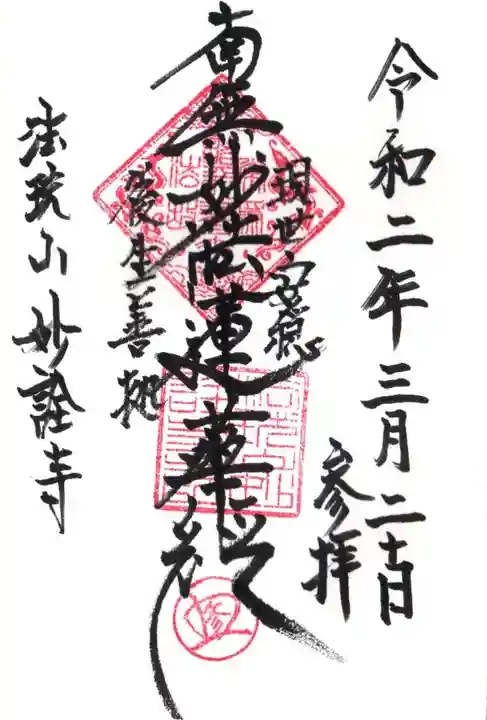 令和二年三月二十日
参拝
現世安穏
南無妙法蓮華経
後生善処
法玩山妙詮寺
修